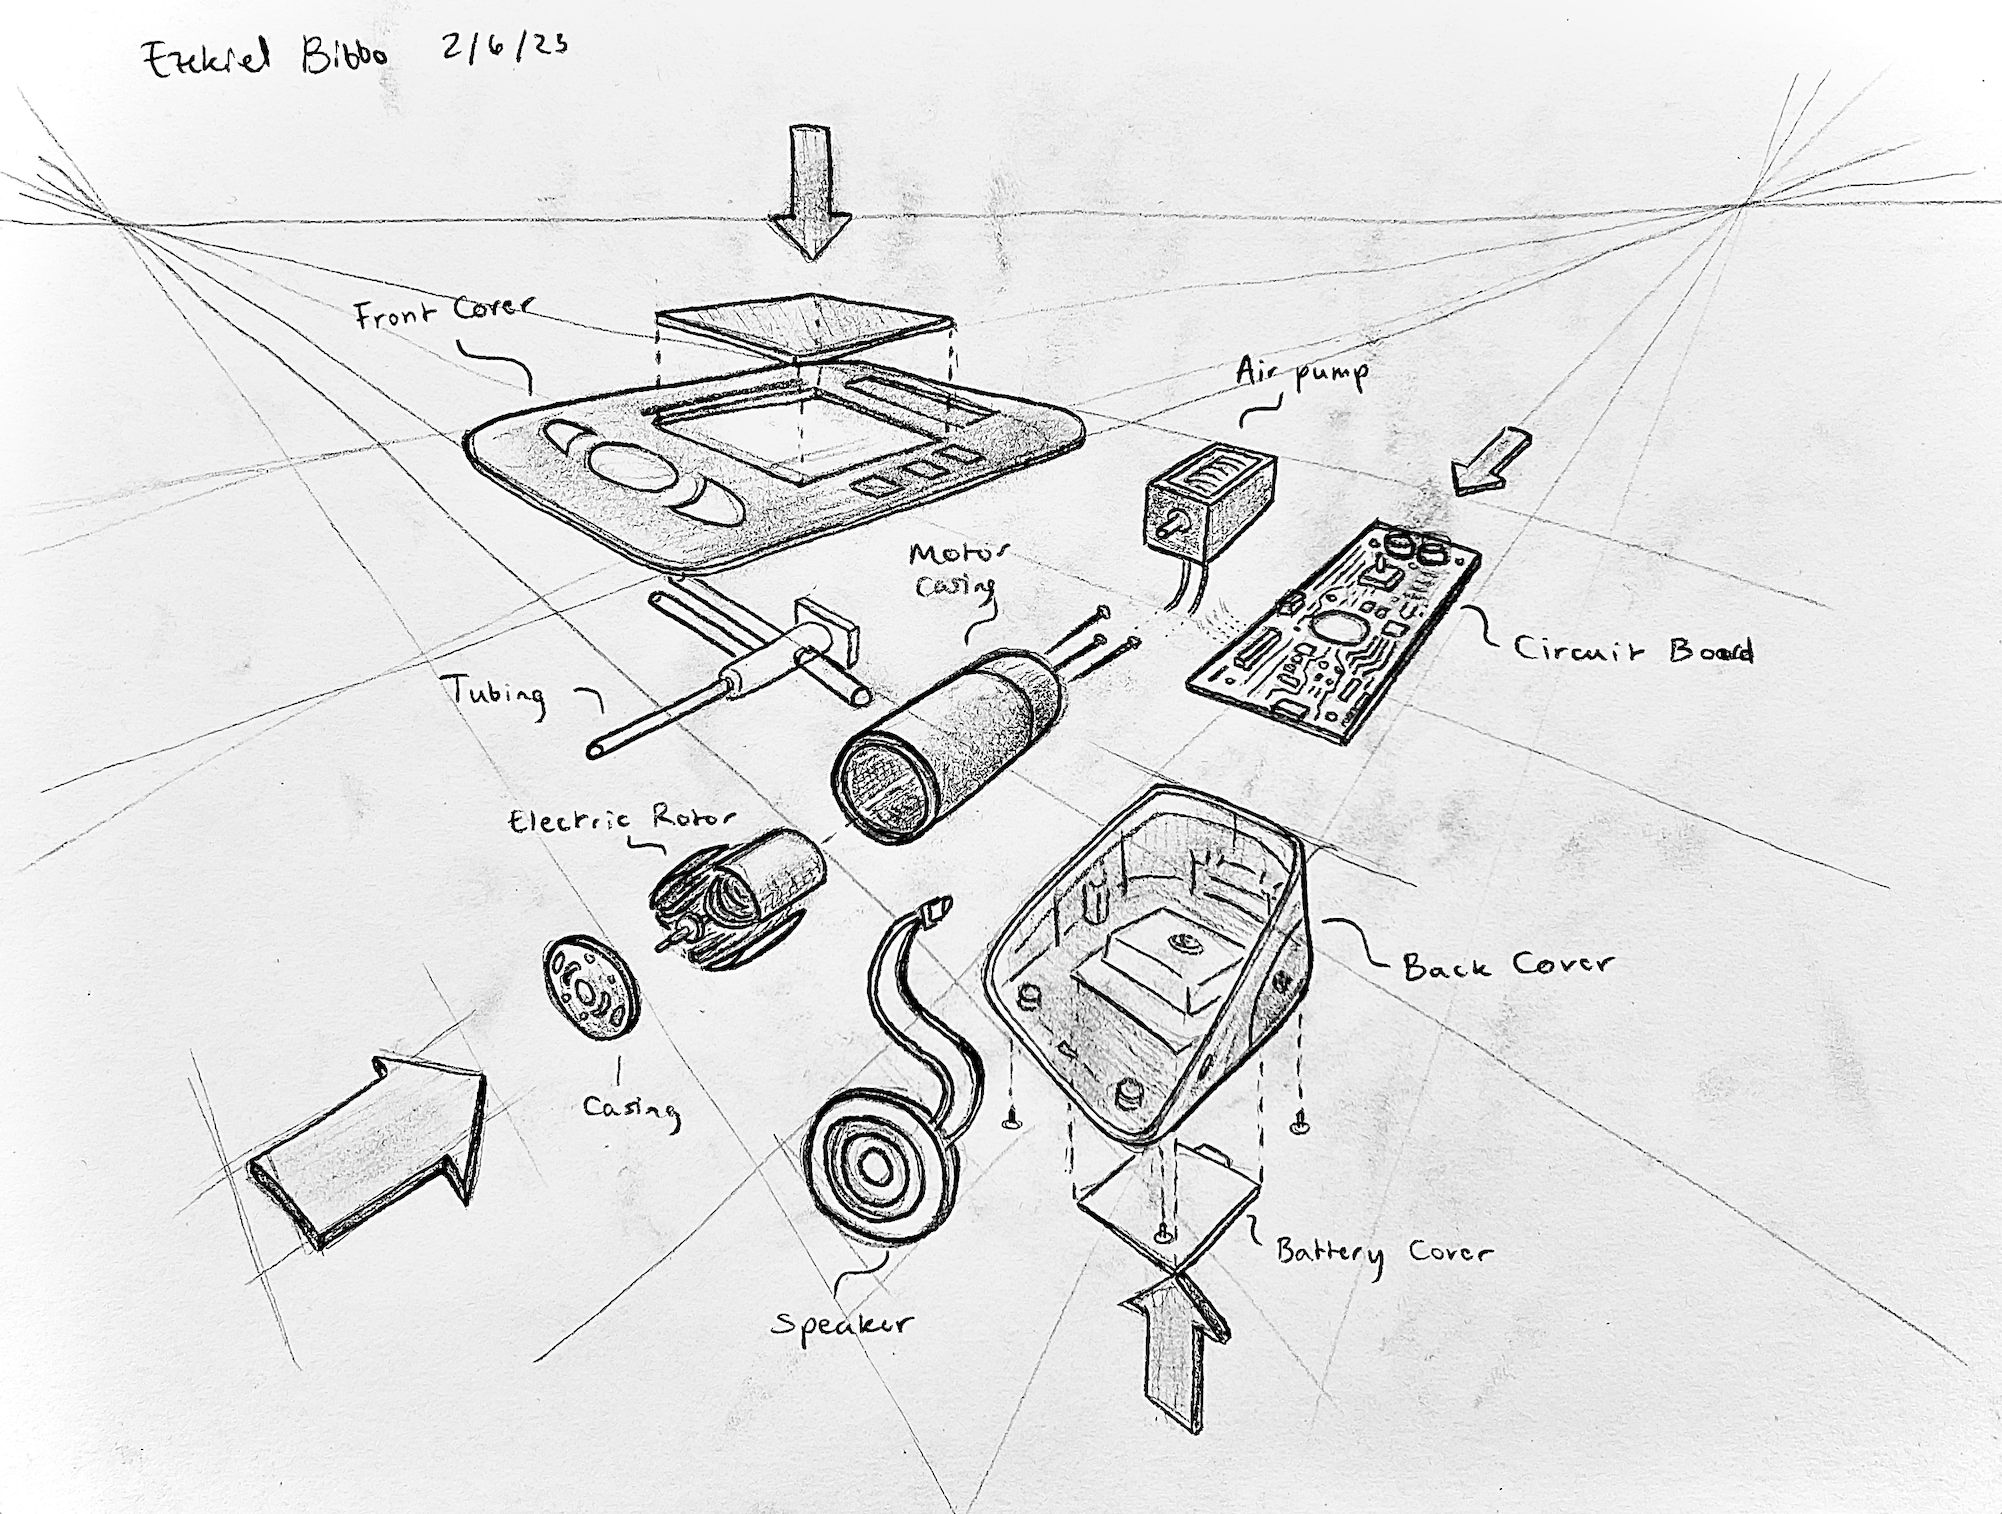 Ezekiel Bibbo 2/6/23
Front Cover
Air pump
Motor
Casing
Circuit Board
Tubing
Electric Rotor
Back Cover
Casing
Battery Cover
Speaker